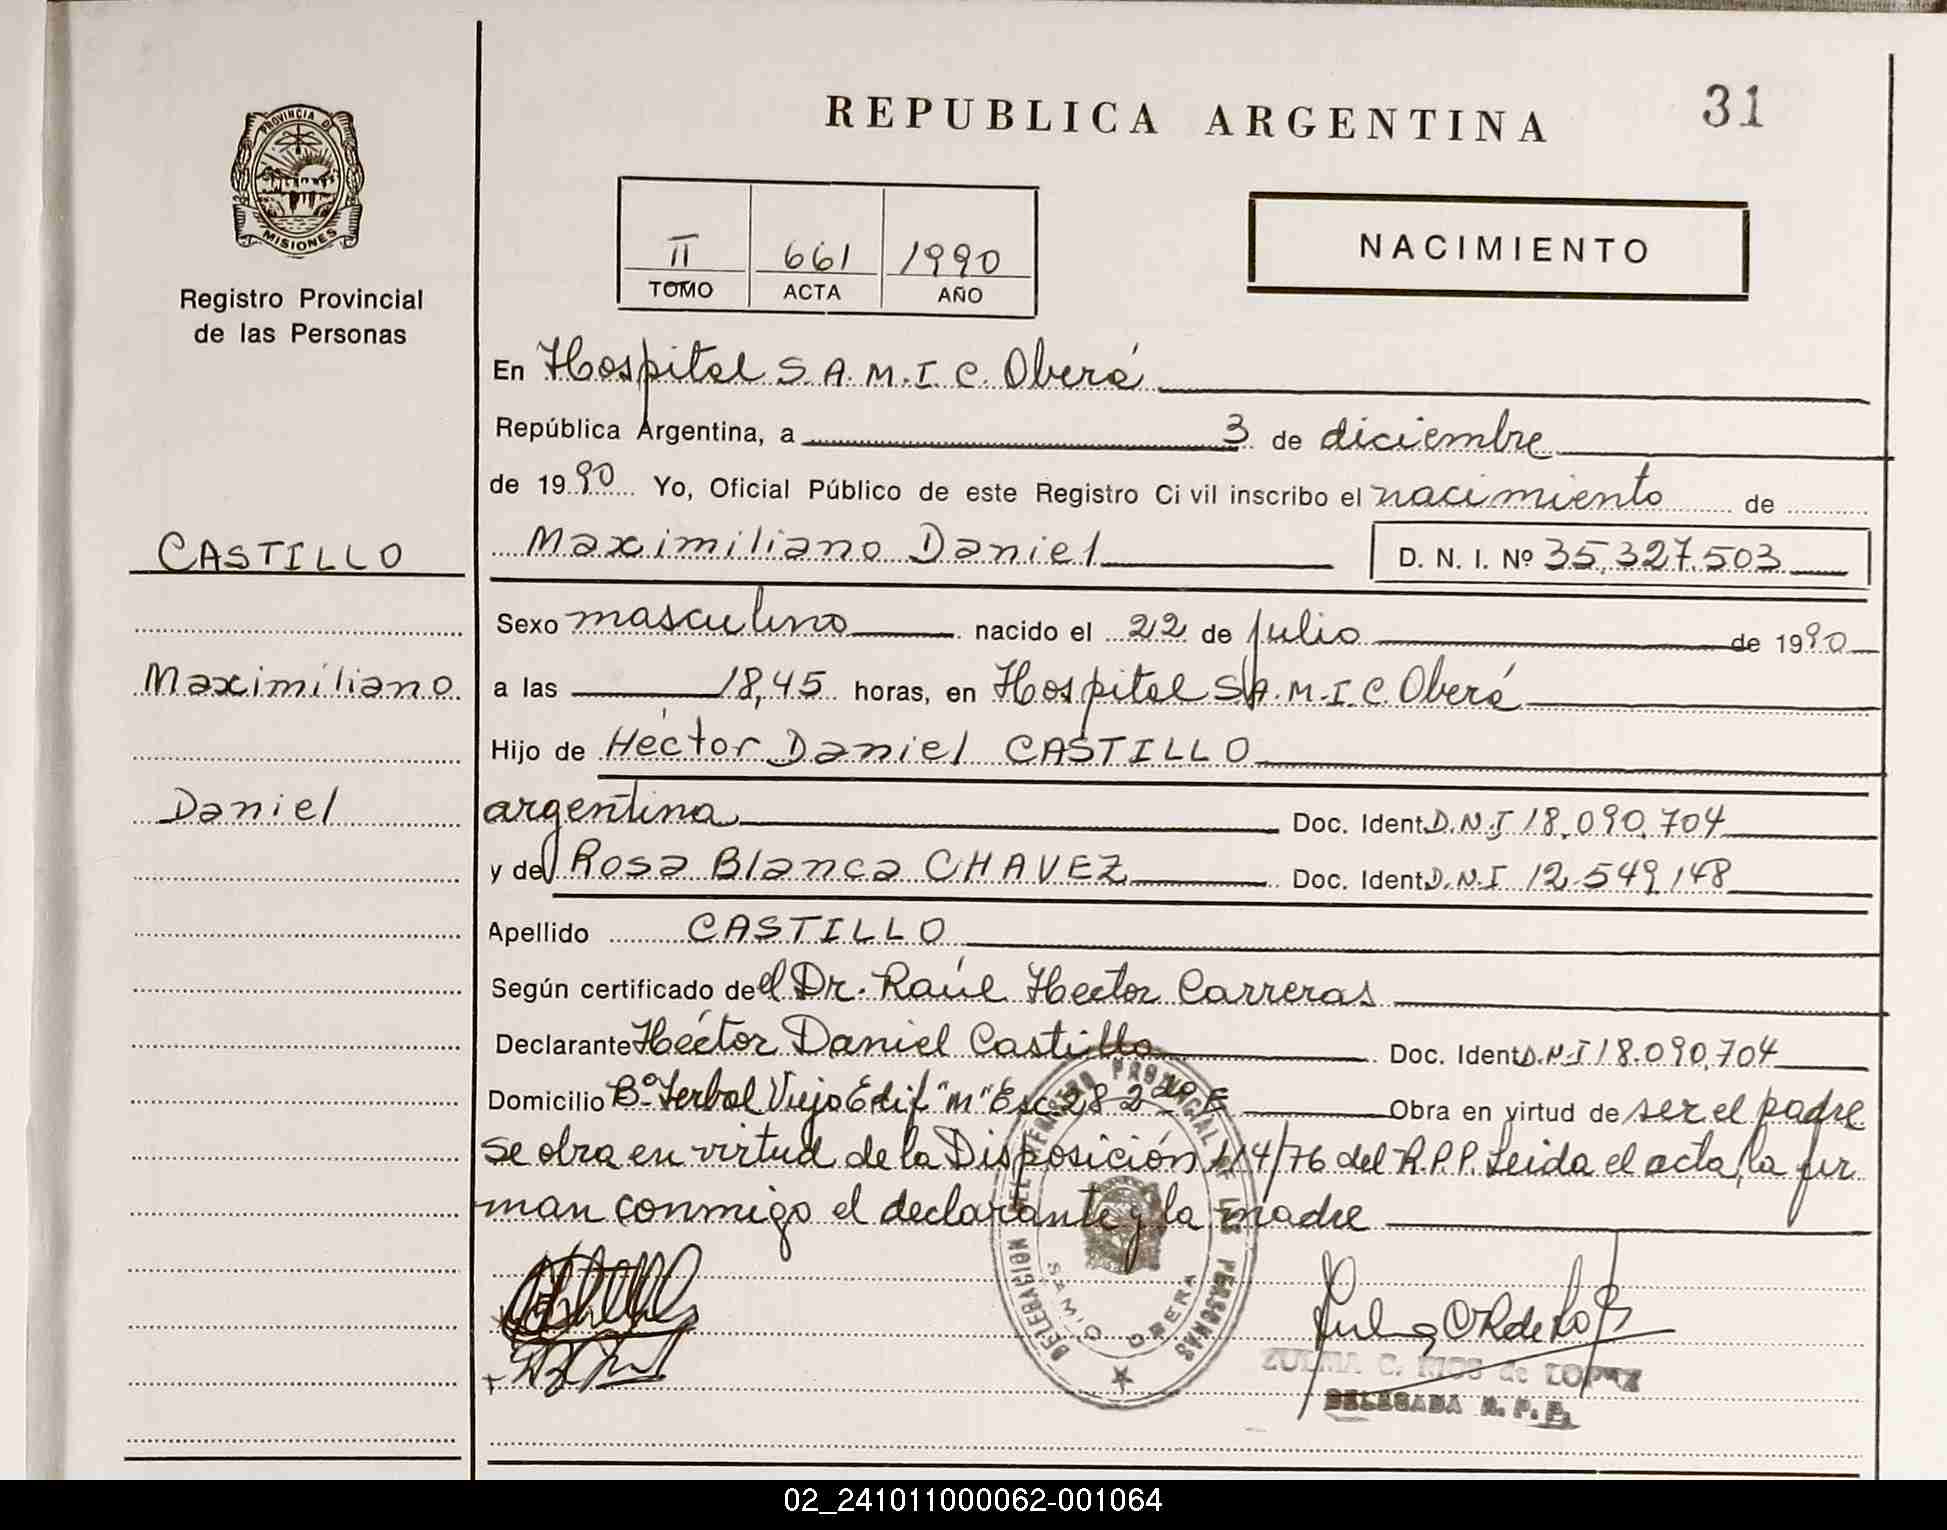 REPUBLICA ARGENTINA
31
PROVINCIA DE
MISIONES
Registro Provincial
de las Personas
II 661 1990
TOMO ACTA AÑO
NACIMIENTO
En Hospital S.A.M.I.C. Oberá
República Argentina, a 3 de diciembre
de 1990 Yo, Oficial Público de este Registro Civil inscribo el nacimiento de
CASTILLO
Maximiliano Daniel D. N. I. Nº 35.327.503
Sexo masculino nacido el 22 de julio de 1990
Maximiliano
a las 18,45 horas, en Hospital S.A.M.I.C. Oberá
Hijo de Héctor Daniel CASTILLO
Daniel
argentina Doc. Ident. D.N.I 18.090.704
y de Rosa Blanca CHAVEZ Doc. Ident. D.N.I 12.549.148
Apellido CASTILLO
Según certificado del Dr. Raúl Hector Carreras
Declarante Héctor Daniel Castillo Doc. Ident. D.N.I 18.090.704
Domicilio Bº Viejo Edif "M" Esc 28 2 E Obra en virtud de ser el padre
se obra en virtud de la Disposición 114/76 del R.P.P. Leida el acta, la fir
man conmigo el declarante y la madre
DELEGACION DEL REGISTRO PROVINCIAL DE LAS PERSONAS
SAMIC OBERA
ZULMA C. RIOS de LOPEZ
DELEGADA R. P. P.
02_241011000062-001064